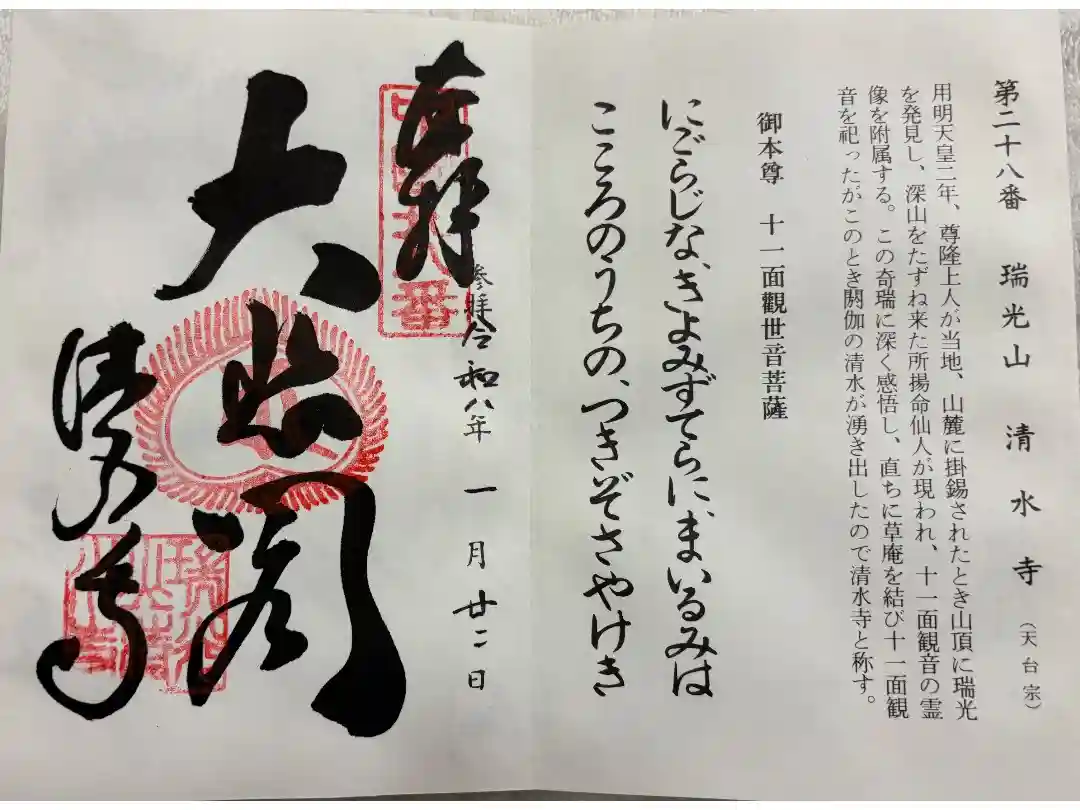 第二十八番　瑞光山　清水寺（天台宗）
用明天皇二年、尊隆上人が当地、山麓に掛錫されたとき山頂に瑞光
を発見し、深山をたずね来た所揚命仙人が現われ、十一面観音の霊
像を附属する。この奇瑞に深く感悟し、直ちに草庵を結び十一面観
音を祀ったがこのとき閼伽の清水が湧き出したので清水寺と称す。
御本尊　十一面觀世音菩薩
にごらじな、きよみずてらに、まいるみは
こころのうちの、つきぞさやけき
奉拝
参拝令和八年　一月廿二日
大悲閣
清水寺